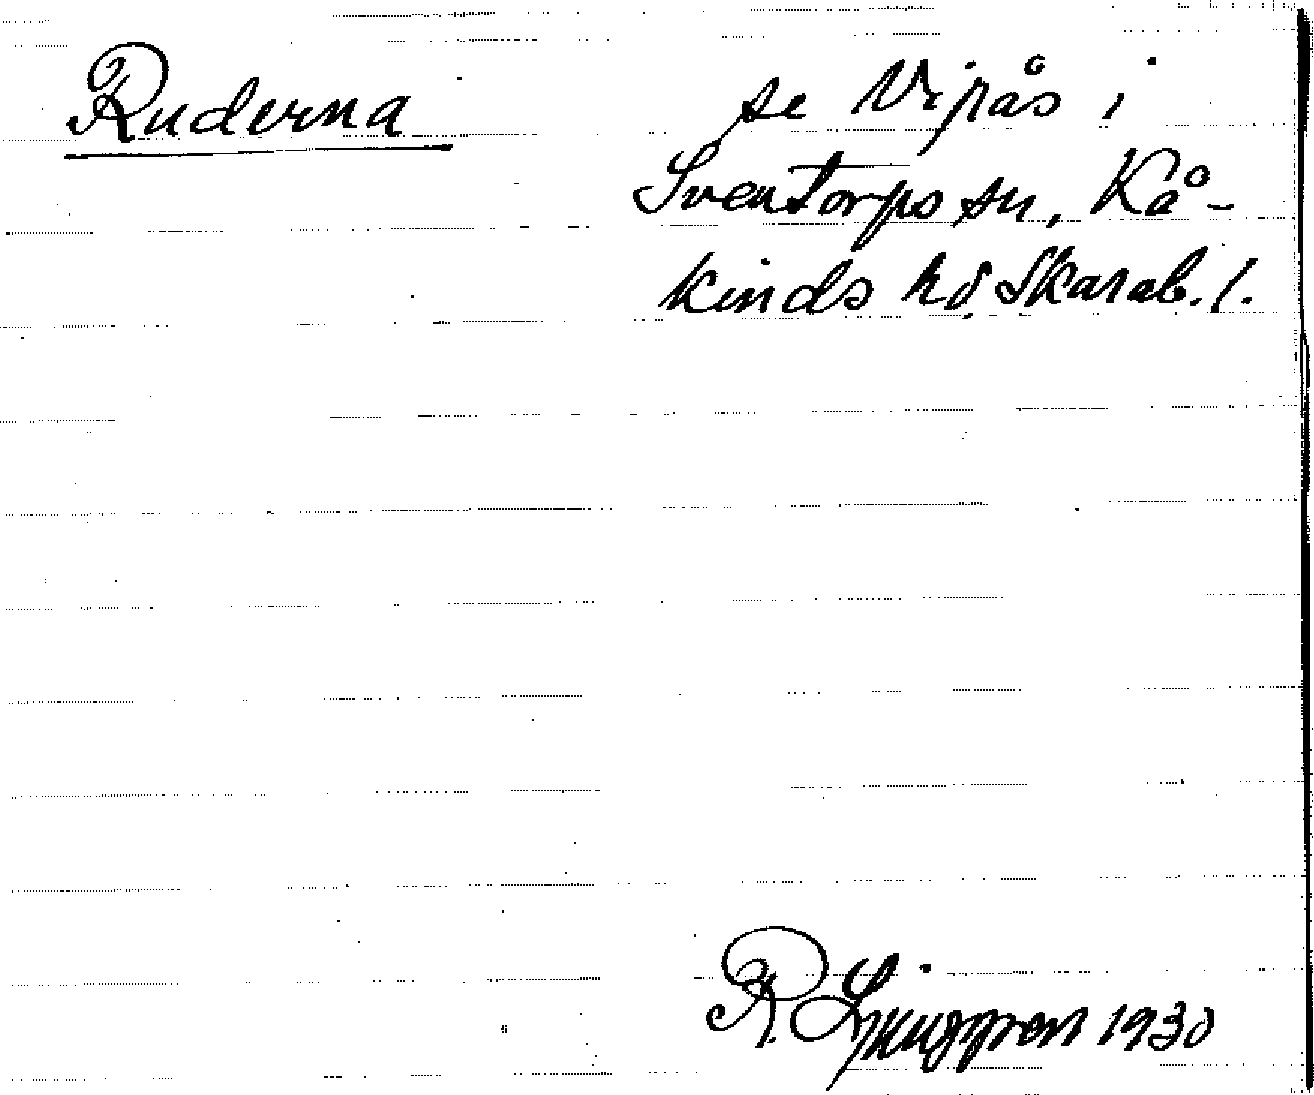 Ruderna
se Viprås i
Sventorps sn, Kå-
kinds hd Skarab. l.
R Ljunggren 1930